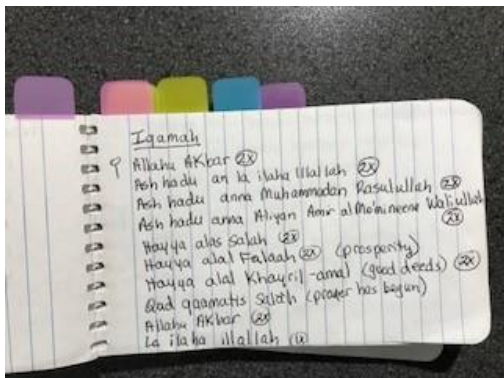 Iqamah
Allahu Akbar 2x
Ash hadu an la ilaha illallah 2x
Ash hadu anna Muhammadan Rasulullah 2x
Ash hadu anna Aliyan Amir al Mo'mineena Waliullah
2x
Hayya alas Salah 2x
Hayya alal Falaah 2x (prosperity)
Hayya alal Khayril-amal (good deeds) 2x
Qad qaamatis Salath (prayer has begun)
Allahu Akbar 2x
La ilaha illallah